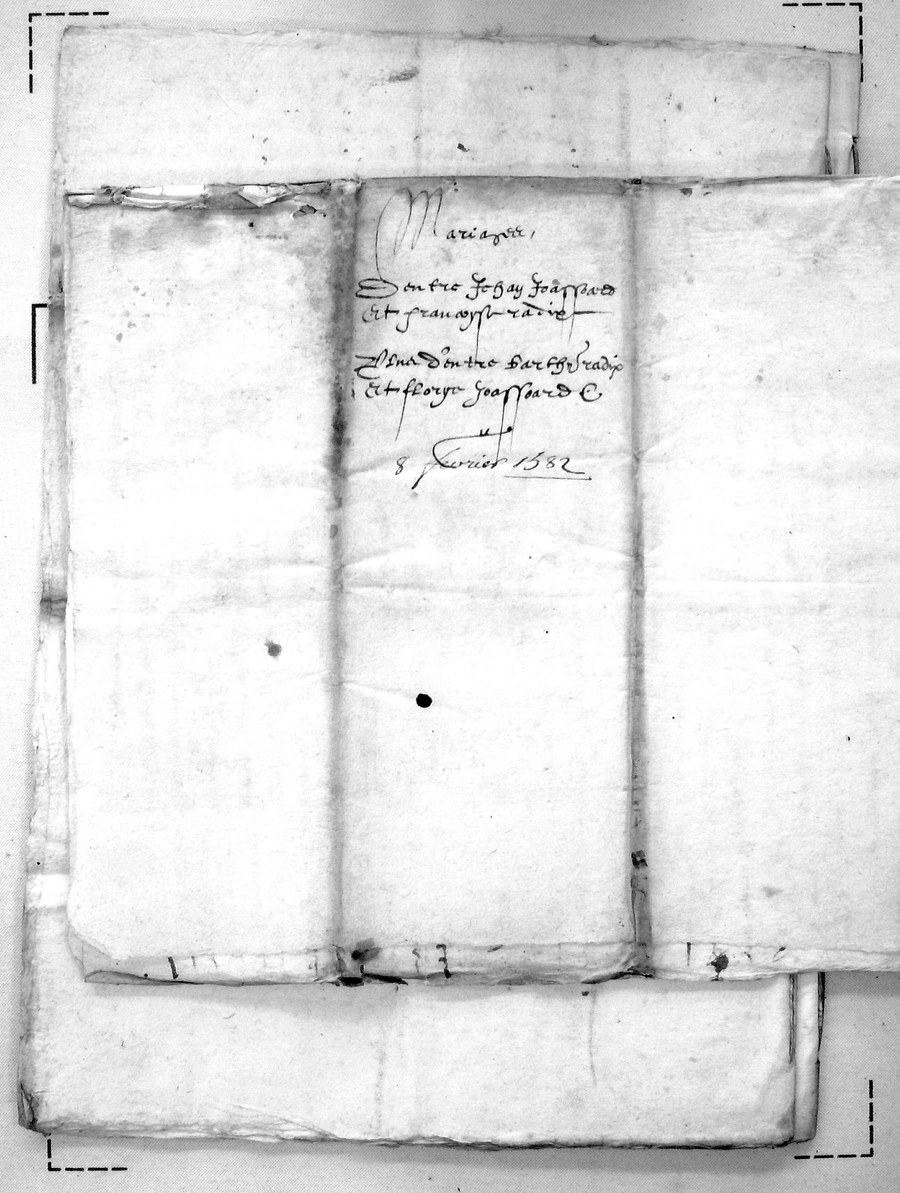 Mariages,
Dentre Jehan Joassard
Et francoyse radix
Plus d'entre Barthy radix
Et florye Joassard &
8 febvrier 1582